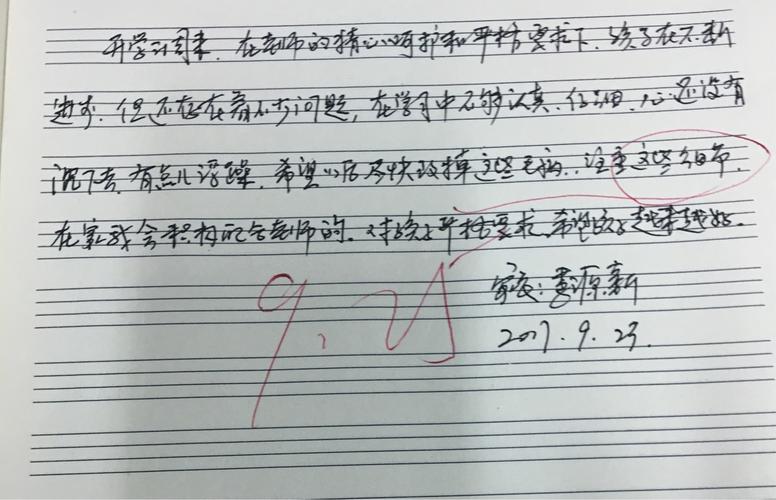 开学三周来,在老师的精心呵护和严格要求下,孩子在不断
进步,但还存在着不少问题,在学习中不够认真、仔细,心还没有
沉下去,有点儿浮躁,希望以后尽快改掉这些毛病,注重这些细节,
在家我会积极配合老师的,对孩子严格要求,希望孩子越来越好。
家长:源新
2017.9.23.
9.25